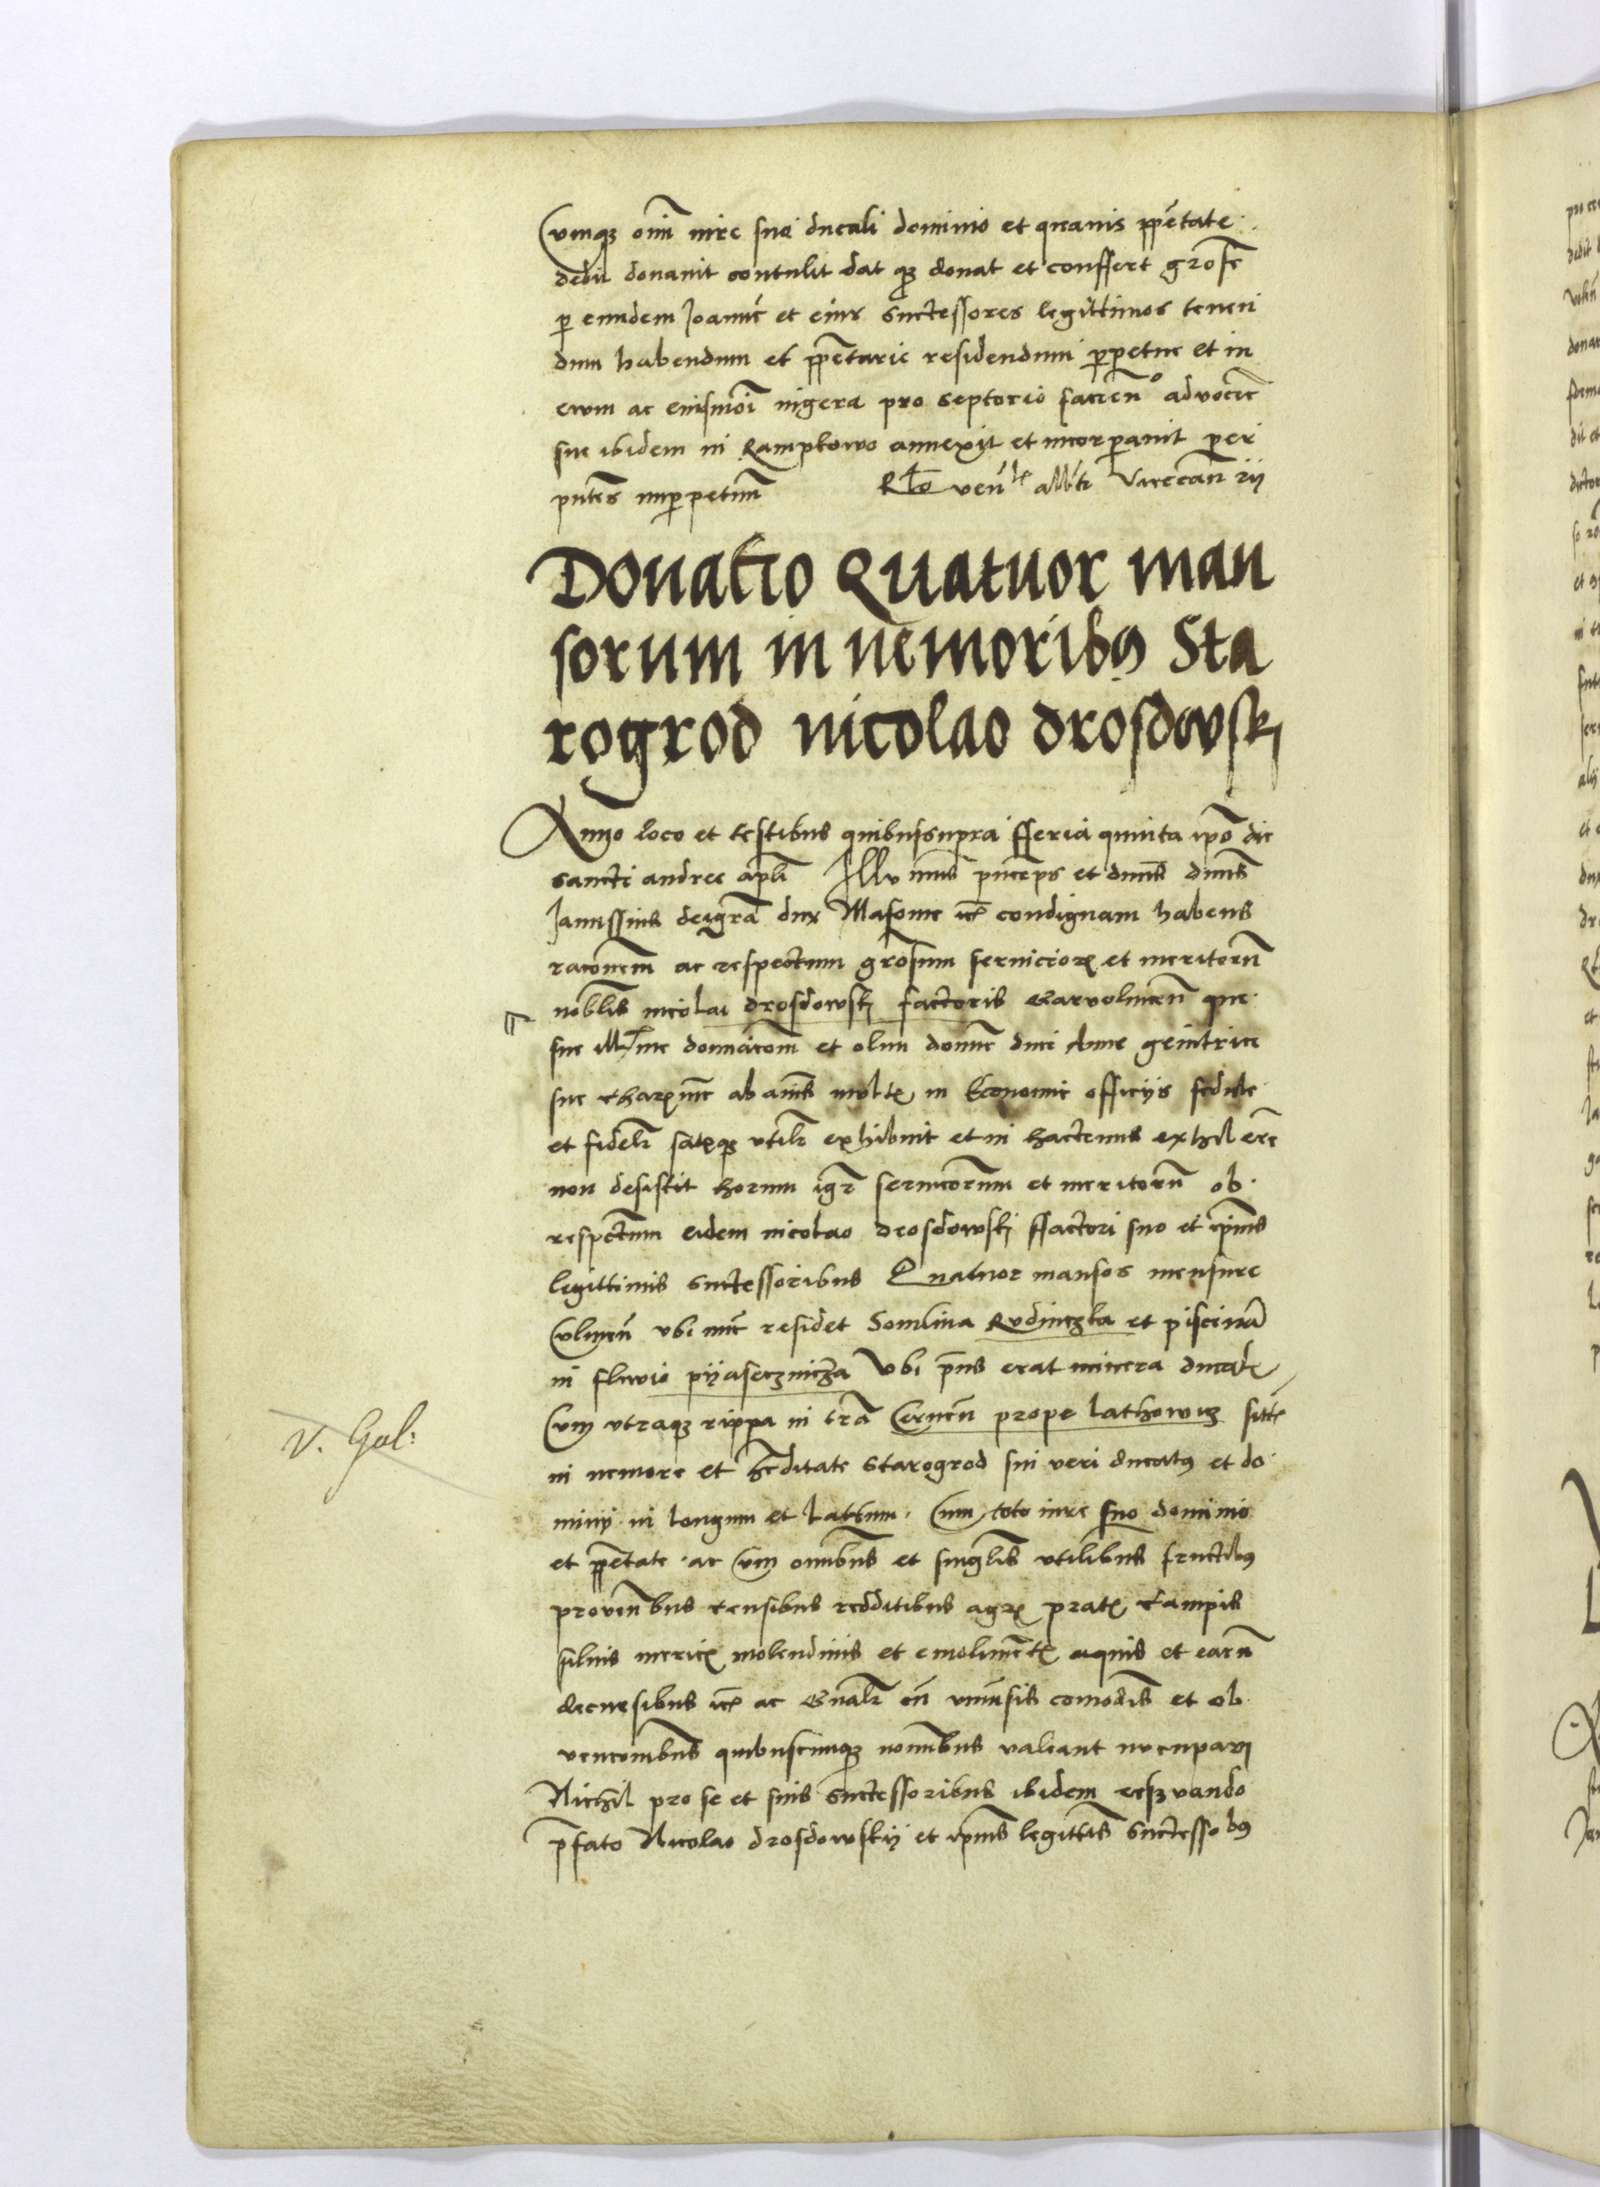 Cumq omi iure suo ducali dominio et quauis ppetate
dedit donauit contulit dat q donat et confert grose
p eundem Joanne et eius successores legittimos tenen
dum habendum et ppetarie residendum ppetue et in
eum ac
sue ibidem in Ramptowo annexit et incorpauit per
pntes inppetuum Rlo ven alb Varccan
Donatio Quatuor man
sorum in nemoribus Sta
rogrod nicolao drosdowskj
Anno loco et testibus quibussupra fferia quinta ipo die
sancti andree apli Illu mus princeps et dnus dnus
Janussius deigra dux Masouie etc condignam habens
raconem ac respectum grosum seruiciorz et meritorum
noblis nicolai drosdowskj factoris Garvolinen que
sue Ill me donnacom et olim domne duci Anne genitrice
sue charzme ab anis multz in Economie officijs sedule
et fidelr satqz vtilr exhibuit et in hactenus exhibere
non desistit horum igr seruicorum et meritorum ob
respectum eidem nicolao drosdowskj ffactori suo et ipius
legittimis successoribus Quatuor mansos mensure
Culmen vbi nunc residet Somlina Rudniczka et piscinam
in fluvio pijasecznicza Vbi prius erat minera ducalz
Cum vtraqz rippa in tra Cernen prope lathowicz sitte
in nemore et heditate Starogrod sui veri ducatus et do
minij in longum et lattum. Cum toto iure suo dominio
et ppetate ac cum omnibus et singlis vtilibus fructibus
provenbus censibus redditibus agrz pratz campis
siluis mericz molendinis et emolimetz aquis et earum
decursibus etc ac Gnalr cum vniusis comodis et ob
vencombus quibuscunqz nomibus valeant nvncpari
Nichil pro se et suis successoribus ibidem resrvando
pfato Nicolao drosdowskij et ipius legittis successobus
V. Gal: